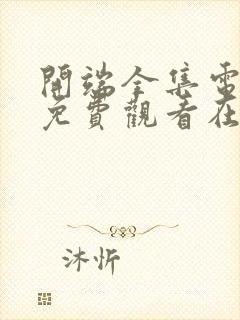 開端全集電
免費觀看在
沐忻